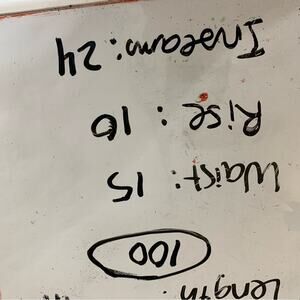 Length:
100
Waist: 15
Rise: 10
Inseam: 24